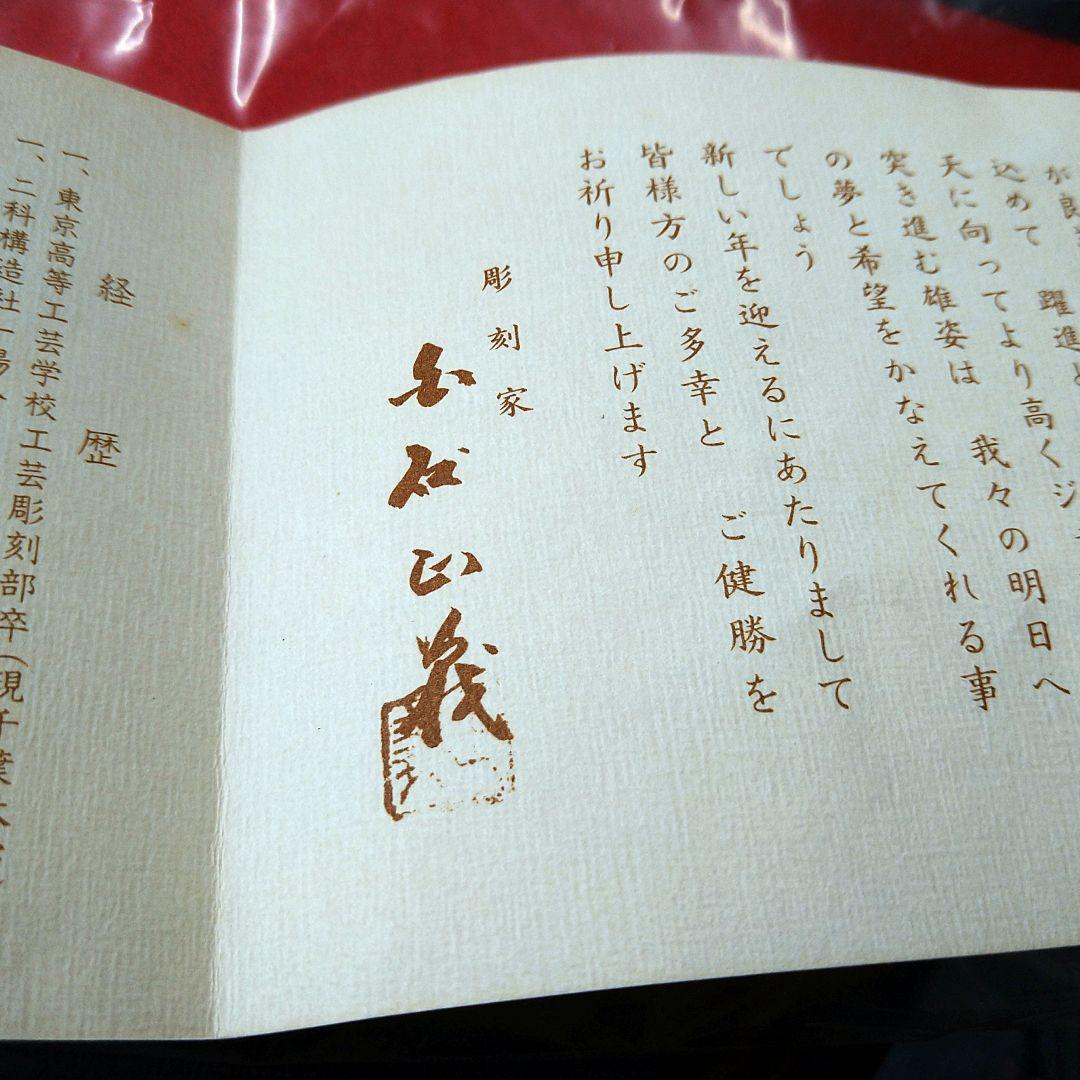 込めて 躍進
天に向ってより高くジ
突き進む雄姿は 我々の明日へ
の夢と希望をかなえてくれる事
でしょう
新しい年を迎えるにあたりまして
皆様方のご多幸と ご健勝を
お祈り申し上げます
彫刻家
正義
経歴
一、東京高等工芸学校工芸彫刻部卒(現千葉大
一、二科構造社